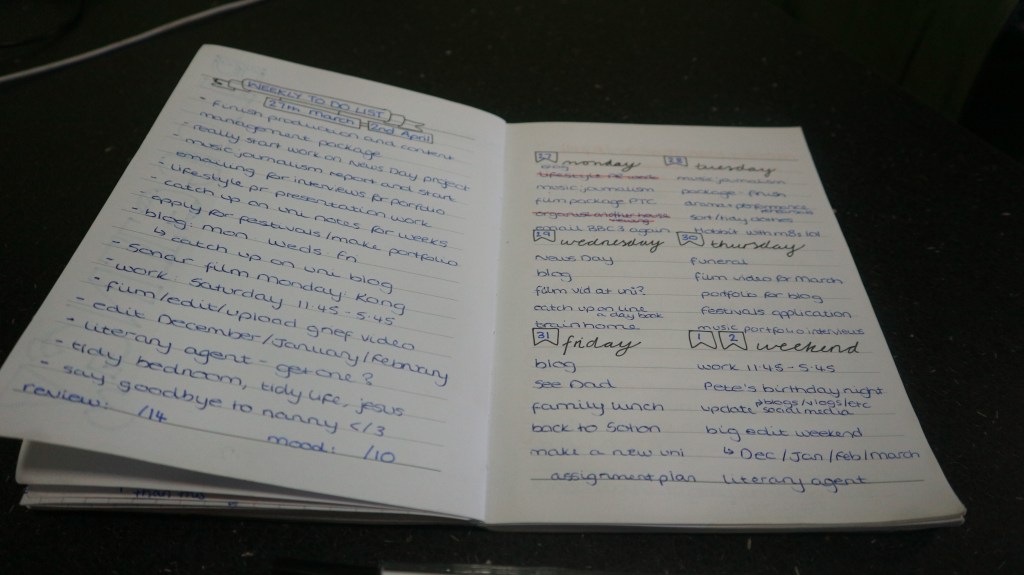 WEEKLY TO DO LIST
27th March - 2nd April
- finish production and content
management package
- really start work on News Day project
- music journalism report and start
emailing for interviews for portfolio
- lifestyle pr presentation work
- catch up on uni notes for weeks
- apply for festivals/make portfolio
- blog: mon weds fri
↳ catch up on uni blog
- Sonar film monday Kong
- work Saturday 11:45 - 5:45
- film/edit/upload grief video
- edit December/January/February
- literary agent - get one?
- tidy bedroom, tidy life, jesus
- say goodbye to nanny </3
review: /14
mood: /10
27 monday
music journalism
film package PTC
email BBC 3 again
28 tuesday
music journalism
package - finish
drama performance
sort/tidy clothes
29 wednesday
News Day
blog
film vid at uni?
catch up on line
a day book
train home
30 thursday
funeral
film video for March
portfolio for blog
festivals application
music portfolio interviews
31 friday
blog
see Dad
family lunch
back to Soton
make a new uni
assignment plan
1 2 weekend
work 11:45 - 5:45
Pete's birthday night
update blogs/vlogs/etc
social media
big edit weekend
↳ Dec/Jan/Feb/March
literary agent
than this